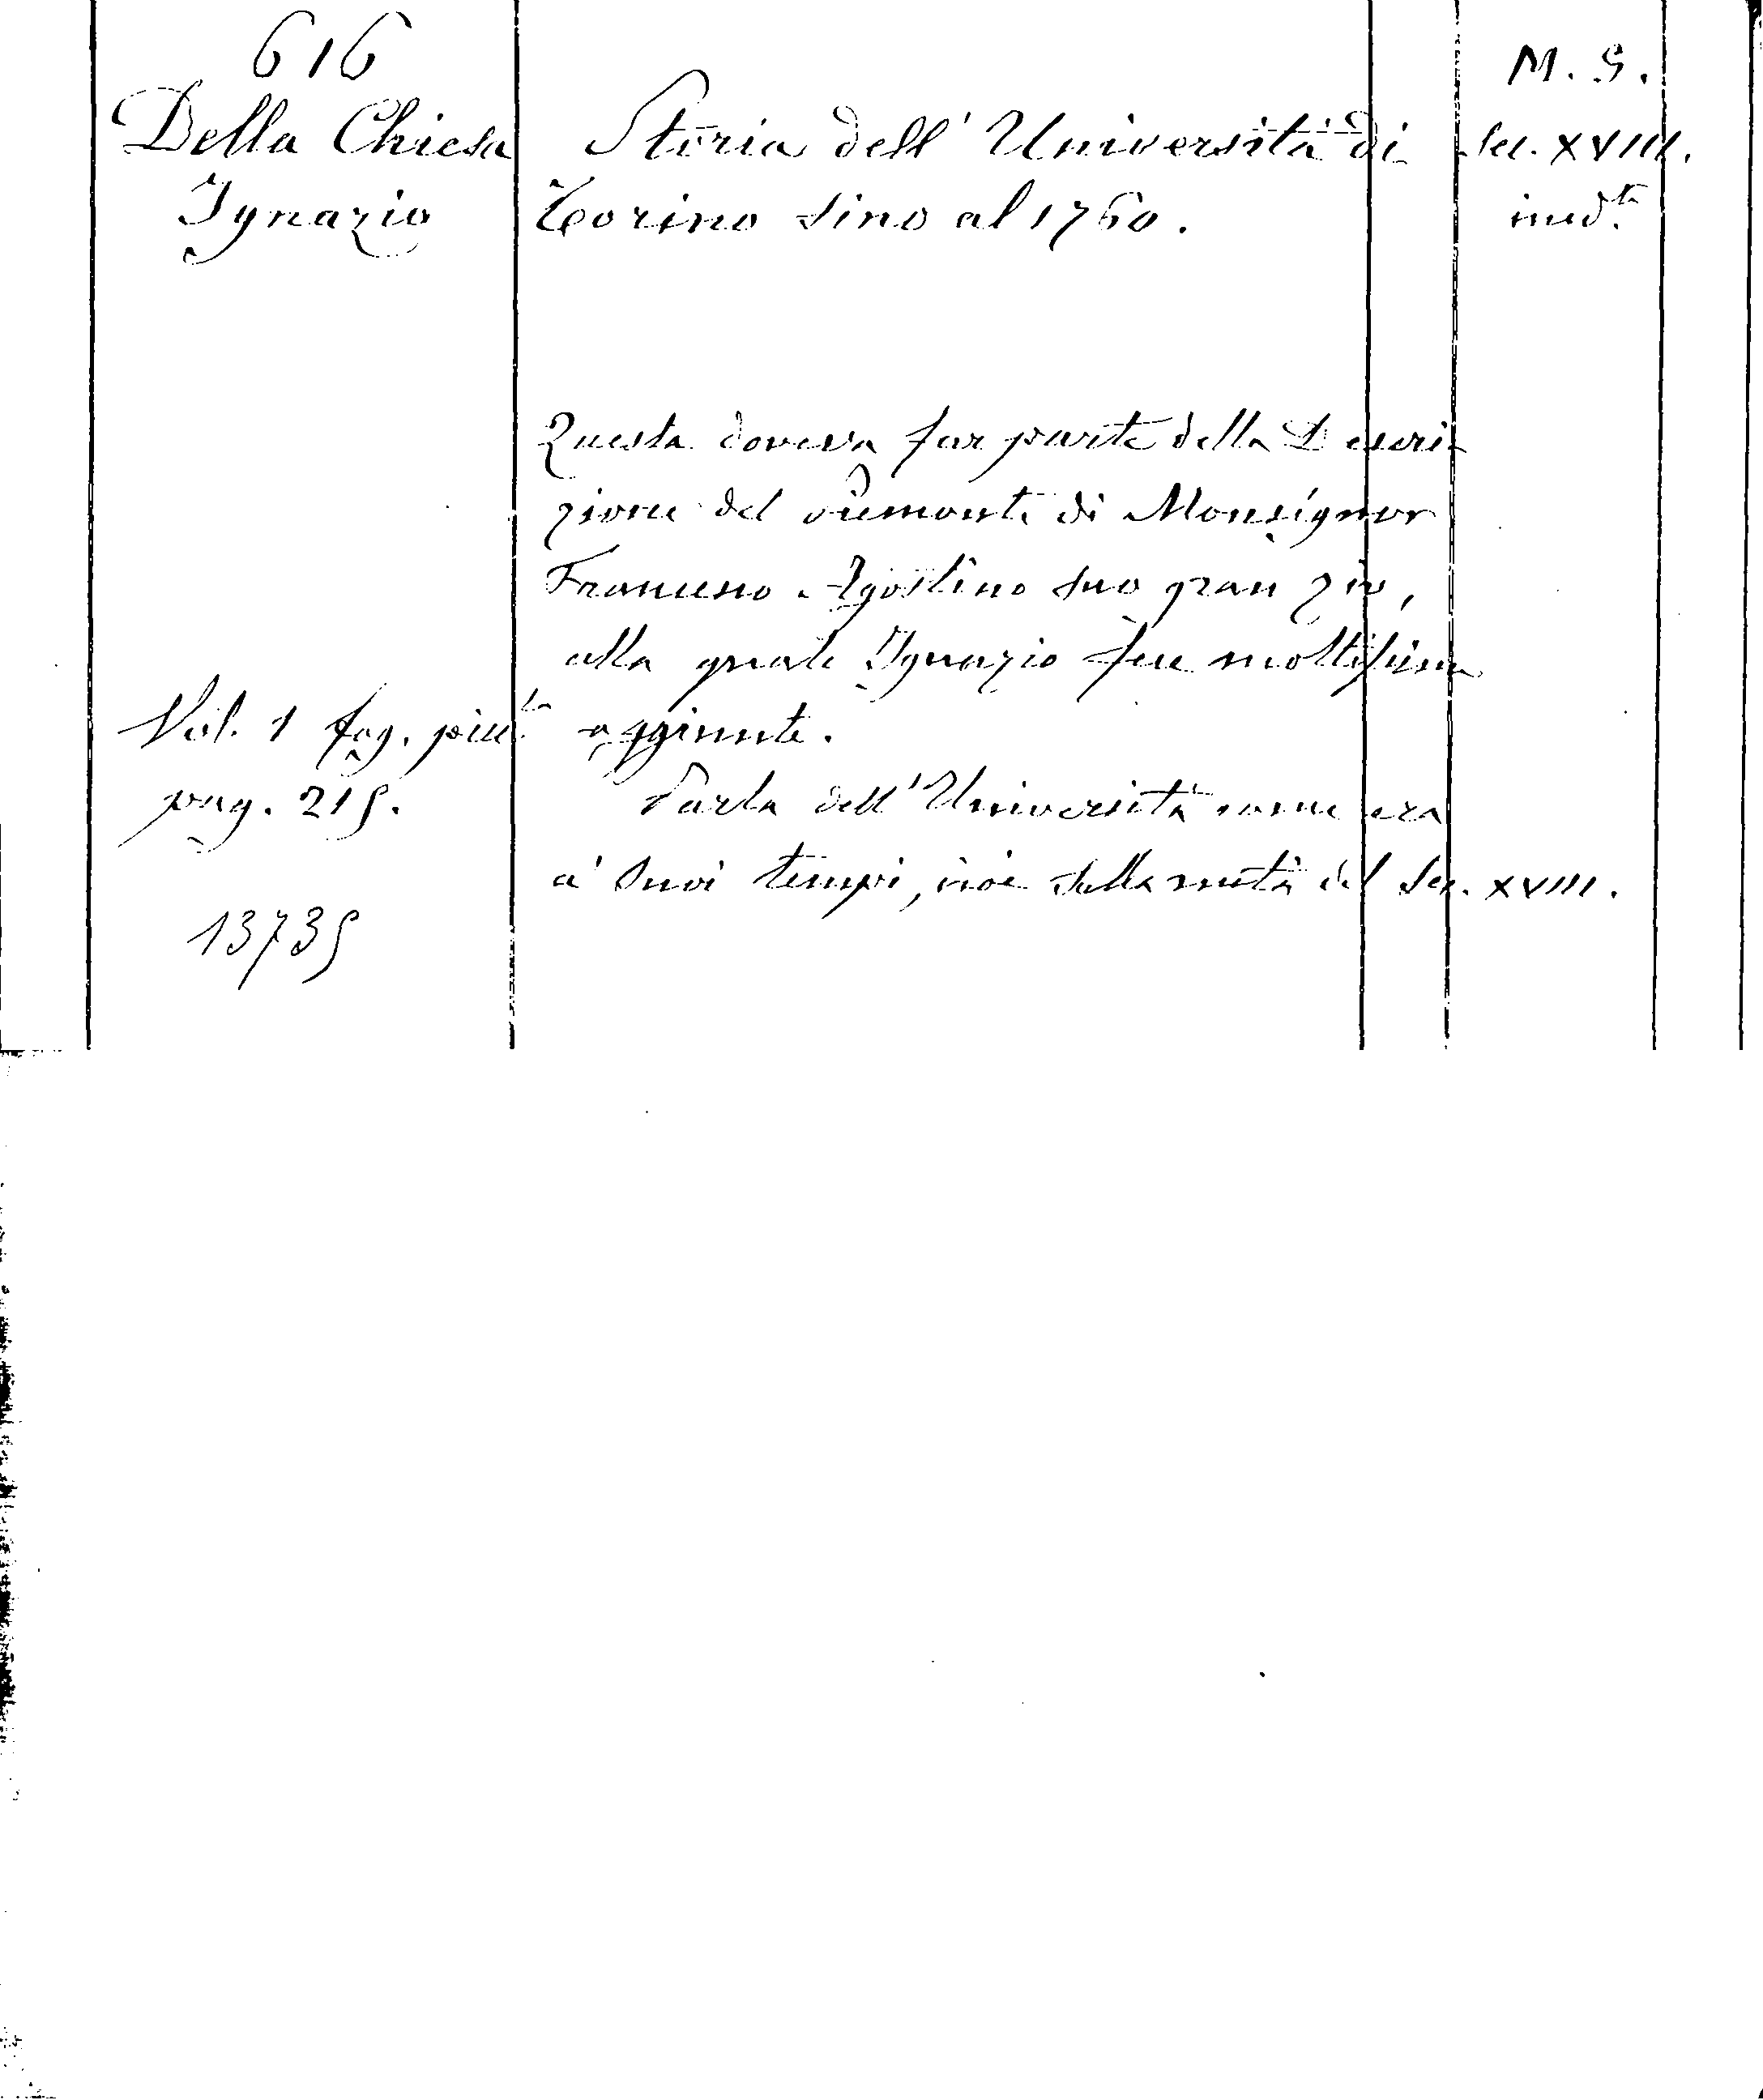 616
Della Chiesa
Ignazio
Storia dell' Università di
Torino sino al 1760.
M. S.
Sec. XVIII.
ined.to
Questa doveva far parte della Descri-
zione del Piemonte di Monsignor
Francesco Agostino suo gran zio,
alla quale Ignazio fece moltissime
aggiunte.
Parla dell' Università come era
a' suoi tempi, cioè della metà del Sec. XVIII.
Vol. 1 fog. picc.lo
pag. 215.
13735